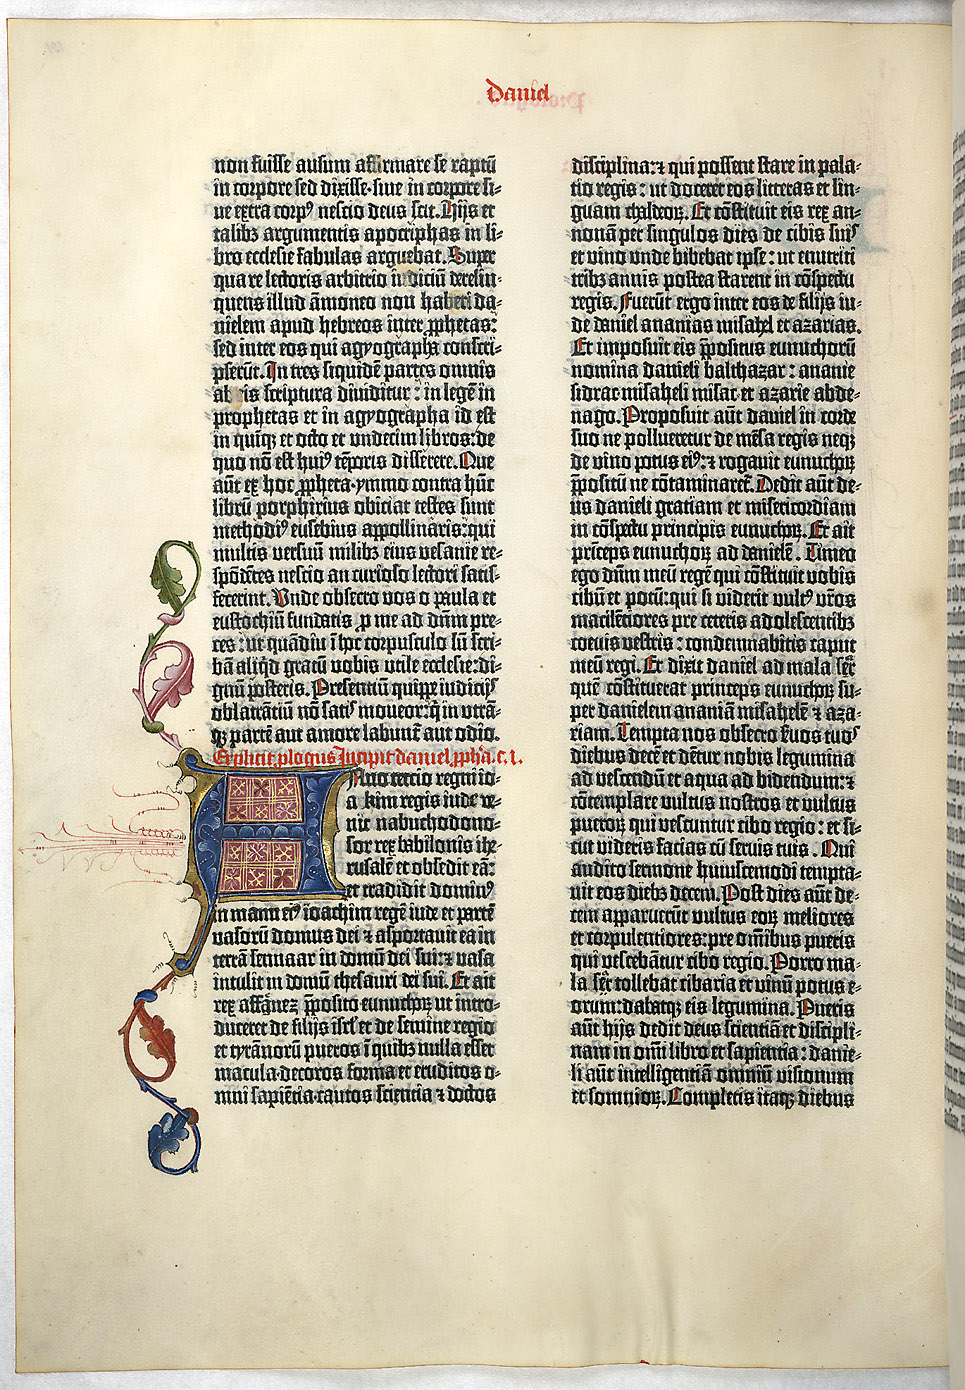 Daniel
non fuisse ausum affirmare se raptū
in corpore sed dixisse·sive in corpore si-
ve extra corpꝰ nescio deus scit. Hijs et
talibꝫ argumentis apocriphas in li-
bro ecclesie fabulas arguebat. Super
qua re lectoris arbitrio iudiciū derelin-
quens illud āmoneo non haberi da-
nielem apud hebreos inter ꝓphetas:
sed inter eos qui agyographa conscri-
pserūt. In tres siquidē partes omnis
ab eis scriptura dividitur: in legē in
prophetas et in agyographa id est
in quinqꝫ et octo et undecim libros: de
quo nō est huiꝰ tēporis disserere. Que
aūt ex hoc ꝓpheta·ymmo contra hūc
librū porphirius obiciat testes sunt
methodiꝰ eusebius appollinaris: qui
multis versuū milibꝫ eius vesanie re-
spōdētes nescio an curioso lectori satis-
fecerint. Unde obsecro vos o paula et
eustochiū fundatis ꝓ me ad dn̄m pre-
ces: ut quādiu ī hoc corpusculo sū scri-
bā aliqd gratū vobis utile ecclesie: di-
gnū posteris. Presentiū quippe iudicijs
oblatrātiū nō satis moveor: q̄ in utrā-
qꝫ partē aut amore labunt aut odio.
Explicit ꝓlogus Incipit daniel ꝓph̄a. c. i.
Anno tercio regni io-
a kim regis iude ve-
nit nabuchodono-
sor rex babilonis ihe-
rusalē et obsedit eā:
et tradidit dominꝰ
in manu eiꝰ ioachim regē iude et partē
vasorū domus dei ⁊ asportavit ea in
terrā sennaar in domū dei sui: ⁊ vasa
intulit in domū thesauri dei sui. Et ait
rex affanez p̄posito eunuchoꝝ ut intro-
duceret de filijs isrl̄ et de semine regio
et tyrānorū pueros ī quibꝫ nulla esset
macula·decoros forma et eruditos o-
mni sapiētia·cautos scientia ⁊ doctos
disciplina: ⁊ qui possent stare in pala-
tio regis: ut doceret eos litteras et lin-
guam chaldeoꝝ. Et cōstituit eis rex an-
nonā per singulos dies de cibis suis
et vino unde bibebat ipse: ut enutriti
tribꝫ annis postea starent in cōspectu
regis. Fuerūt ergo inter eos de filijs iu-
de daniel ananias misahel et azarias.
Et imposuit eis p̄positus eunuchorū
nomina danieli balthazar: ananie
sidrac misaheli misac et azarie abde-
nago. Proposuit aūt daniel in corde
suo ne pollueretur de mēsa regis neqꝫ
de vino potus eiꝰ: ⁊ rogavit eunuchoꝝ
p̄positū ne cōtaminaret. Dedit aūt de-
us danieli gratiam et misericordiam
in cōspectu principis eunuchoꝝ. Et ait
prīceps eunuchoꝝ ad danielē. Timeo
ego dn̄m meū regē qui cōstituit vobis
cibū et potū: qui si viderit vultꝰ vr̄os
macilētiores pre ceteris adolescentibꝫ
coevis vestris: condemnabitis caput
meū regi. Et dixit daniel ad malasēr
quē cōstituerat princeps eunuchoꝝ su-
per danielem ananiā misahelē ⁊ aza-
riam. Tempta nos obsecro s̄vos tuos
diebus decē et dētur nobis legumina
ad vescendū et aqua ad bibendum: ⁊
cōtemplare vultus nostros et vultus
pueroꝝ qui vescuntur cibo regio: et si-
cut videris facias cū servis tuis. Qui
audito sermone huiuscemodi tempta-
vit eos diebꝫ decem. Post dies aūt de-
cem apparuerūt vultus eoꝝ meliores
et corpulentiores: pre om̄ibus pueris
qui vescebātur cibo regio. Porro ma-
la sēr tollebat cibaria et vinū potus e-
orum: dabatqꝫ eis legumina. Pueris
aūt hijs dedit deus scientiā et discipli-
nam in om̄i libro et sapientia: danie-
li aūt intelligentiā omniū visionum
et somnioꝝ. Completis itaqꝫ diebus